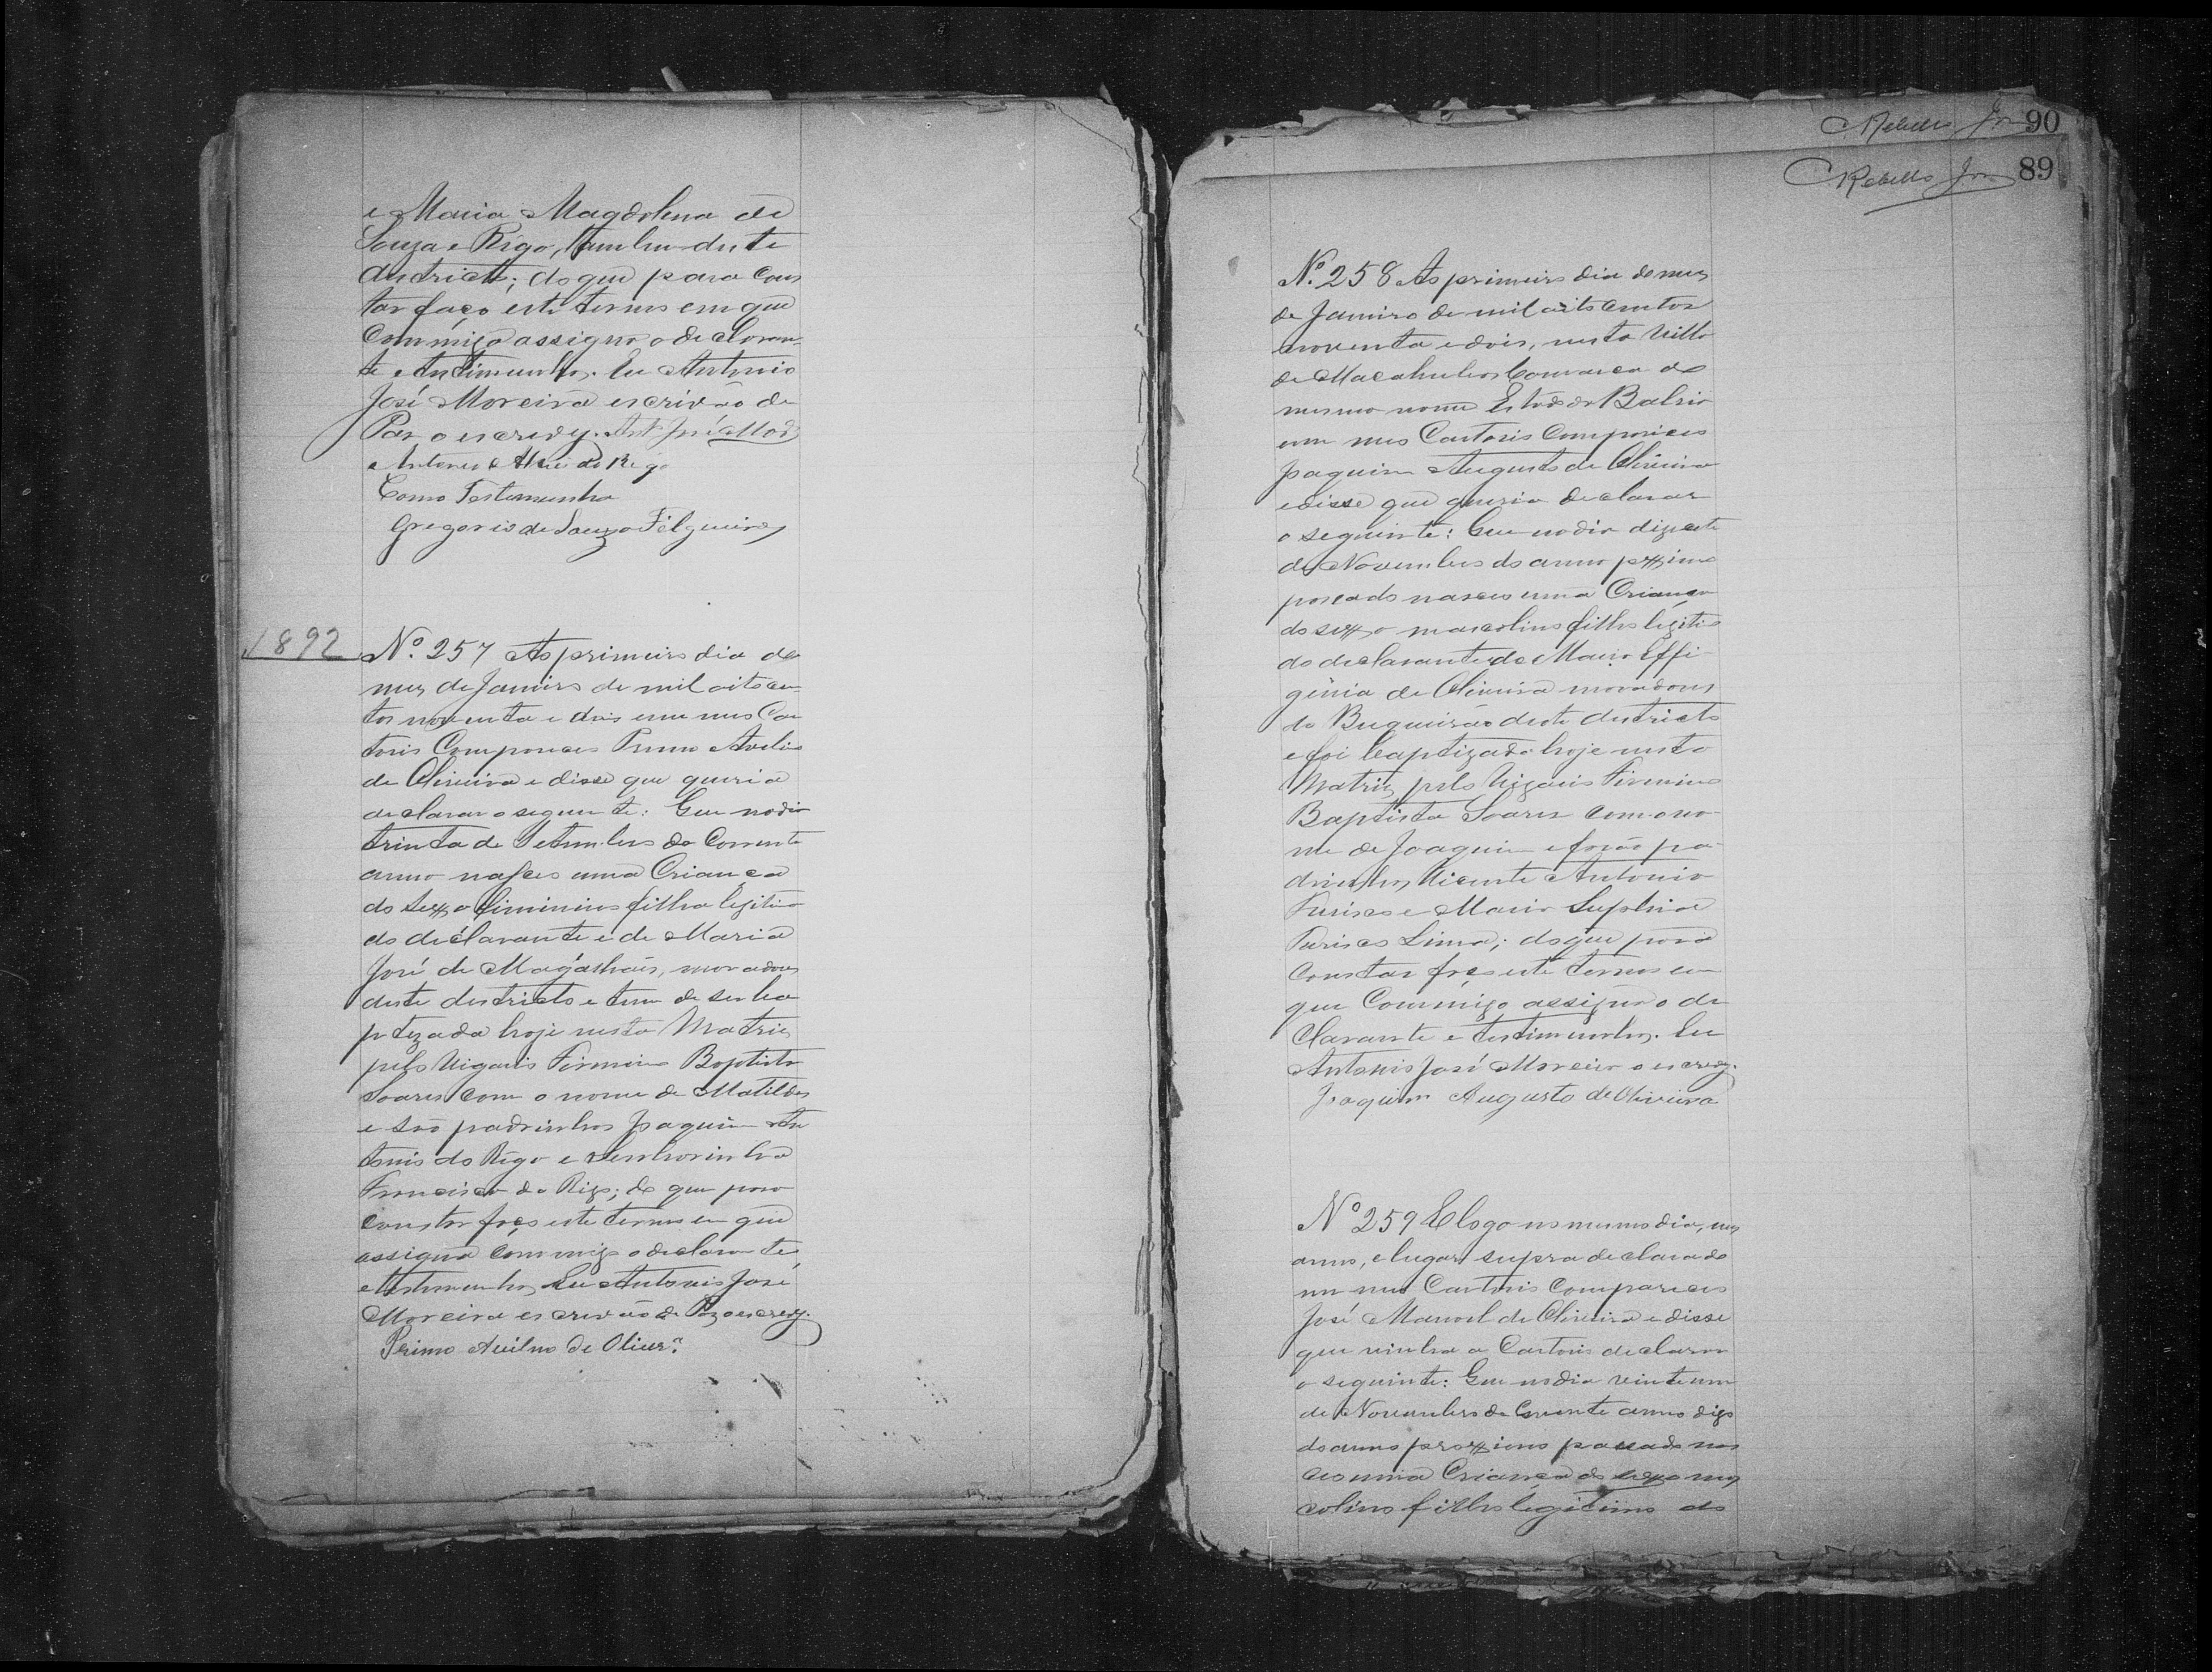 e Maria Magdolena de
Souza e Rigo, tambem deste
districto; do que para cons
tar faço este termo em que
commigo assigna o declaran-
te e testimunhas. Eu Antonio
José Moreira escrivão de
Paz o escrevy. Ant José Mor
Antonio d Rego
Como Testemunha
Gregorio de Souza Felgueiras
1892
Nº. 257 Ao primeiro dia do
mez de Janeiro de mil oitocen
tos noventa e dois em meu Car
torio compareceu Primo Avelino
de Oliveira e disse que queria
declarar o seguinte: Que no dia
trinta de Setembro do corrente
anno nasceu uma criança
do sexo feminino filha legitima
do declarante e de Maria
José de Magalhães, moradores
deste districto e tem de ser ba
ptezada hoje nesta Matriz
pelo Vigario Firmino Baptista
Soares com o nome de Matildes
e são padrinhos Joaquim An
tonio do Rego e Senhorinha
Francisca do Rigo; do que para
constar faço este termo em que
assigna commigo o declarante
e testimunhas. Eu Antonio José
Moreira escrivão de Paz o escrevy.
Primo Avilino de Olivrª.
Rebello Jor 90
Rebello Jor 89
Nº. 258 Ao primeiro dia do mez
de Janeiro de mil oitocentos
noventa e dois, nesta Villa
de Macahubas Comarca do
mesmo nome Estado da Bahia
em meu Cartorio compareceu
Joaquim Augusto de Oliveira
e disse que queria declarar
o seguinte: Que no dia dezesete
de Novembro do anno proximo
passado nasceu uma Criança
do sexo mascolino filho legitimo
do declarante e de Maria Effi-
gênia de Oliveira moradores
do Buqueirão deste districto
e foi baptizado hoje nesta
Matriz pelo Vigario Firmino
Baptista Soares com o no-
me de Joaquim e forão pa-
drinhos Vicente Antonio
e Maria
Lima; do que para
constar faço este termo em
que commigo assigna o de
clarante e testimunhas. Eu
Antonio José Moreira o escrevy.
Joaquim Augusto de Oliveira
Nº 259 E logo no mesmo dia, mez,
anno, e lugar supra declarado
em meu Cartorio compareceu
José Manoel de Oliveira e disse
que vinha a Cartorio declarar
o seguinte: Que no dia vinte um
de Novembro do corrente anno digo
do anno proximo passado nas
ceo uma Criança do sexo mas
colino filho legitimo do